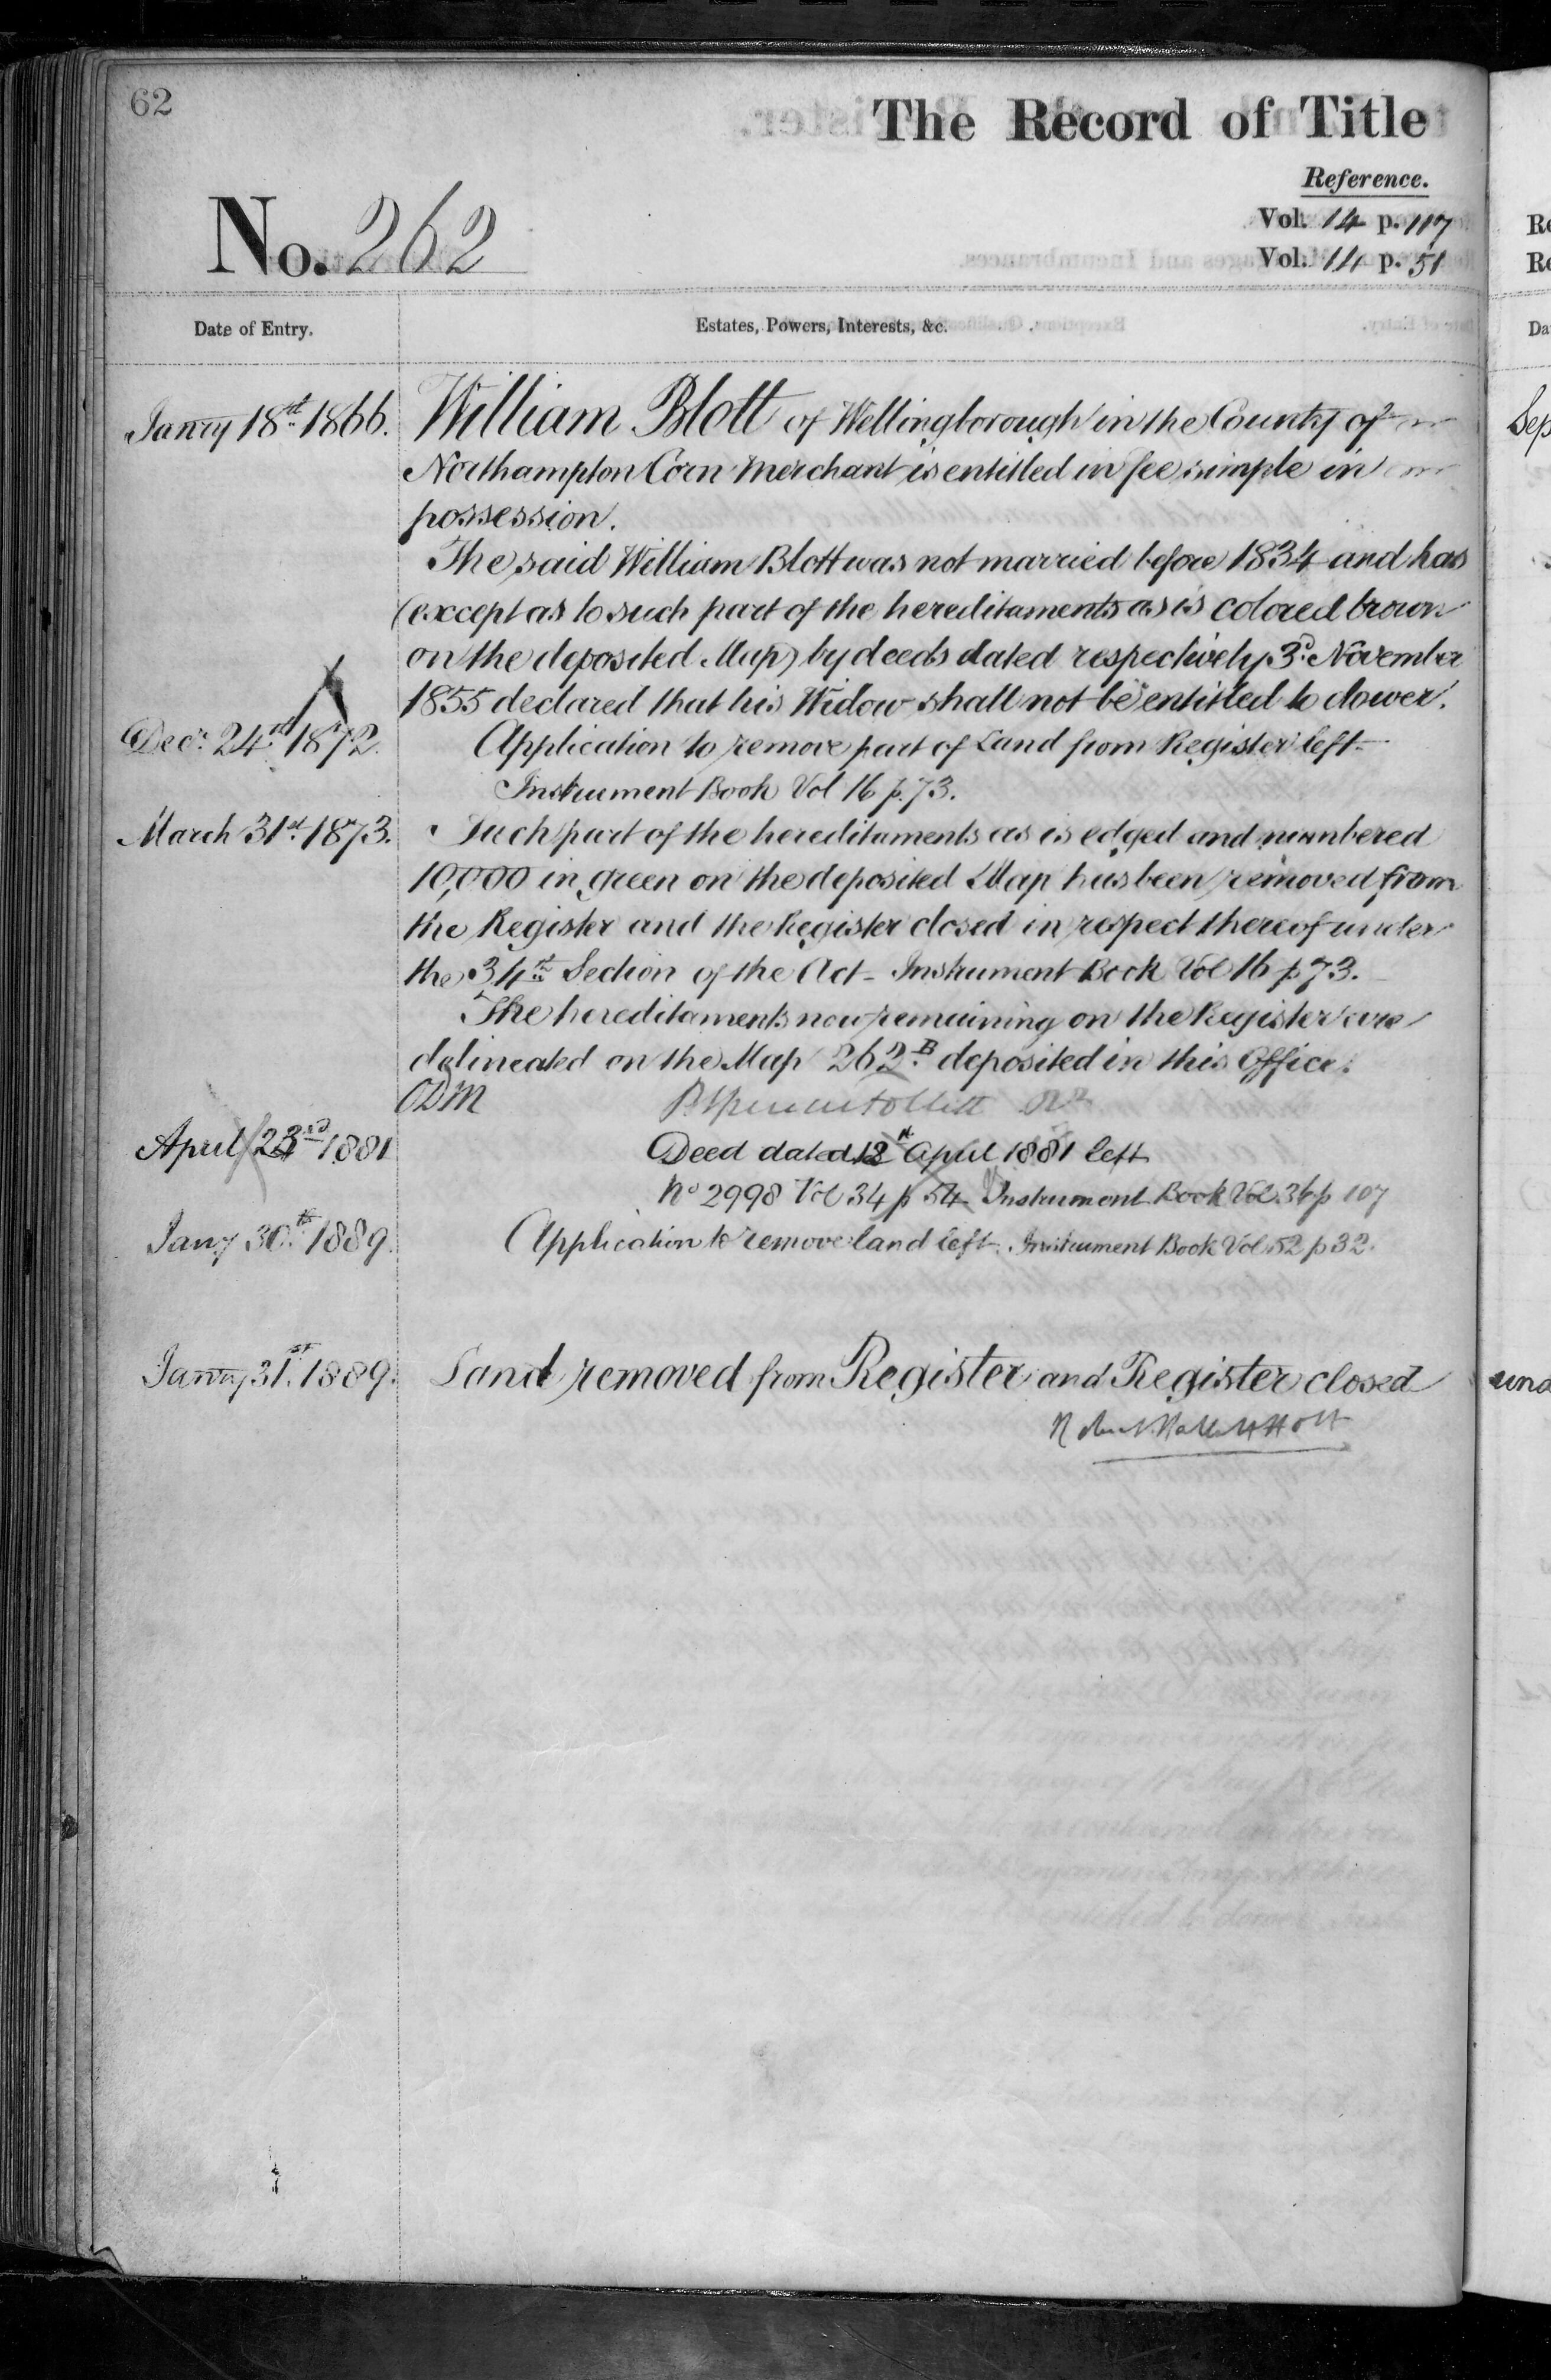 62
The Record of Title
Reference.
No. 262
Vol. 14 p. 117
Vol. 14 p. 51
Date of Entry.
Estates, Powers, Interests, &c.
Jany 18th 1866. William Blott of Wellingborough in the County of
Northampton Corn Merchant is entitled in fee simple in
possession.
The said William Blott was not married before 1834 and has
(except as to such part of the hereditaments as is colored brown
on the deposited Map) by deeds dated respectively 3d. November
1855 declared that his Widow shall not be entitled to dower.
Decr. 24th 1872. Application to remove part of Land from Register left
Instrument Book Vol 16 p. 73.
March 31st 1873. Such part of the hereditaments as is edged and numbered
10,000 in green on the deposited Map has been removed from
the Register and the Register closed in respect thereof under
the 34th Section of the Act - Instrument Book Vol 16 p 73.
The hereditaments now remaining on the Register are
delineated on the Map 262B deposited in this Office.
ODM
April 23rd 1881 Deed dated 12th April 1881 left
No 2998 Vol 34 p 54 Instrument Book Vol 36 p 107
Jany 30th 1889. Application to remove land left. Instrument Book Vol 52 p 32.
Jany 31st. 1889. Land removed from Register and Register closed
Re
Re
Da
Sep
und